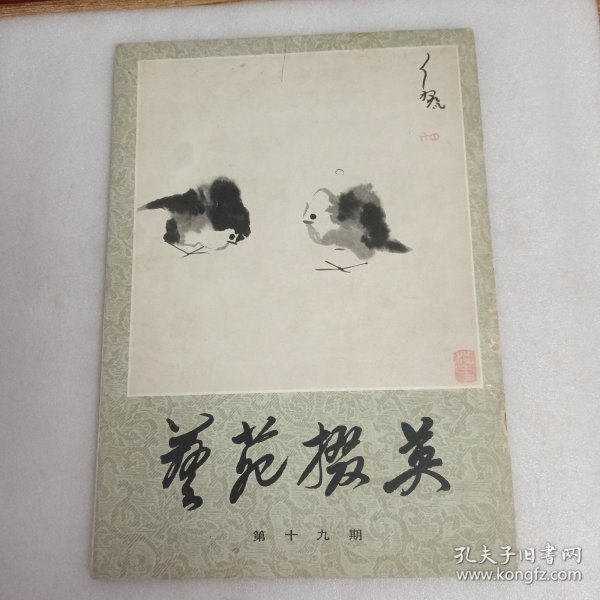 藝苑掇英
第十九期
孔夫子旧书网
www.kongfz.com